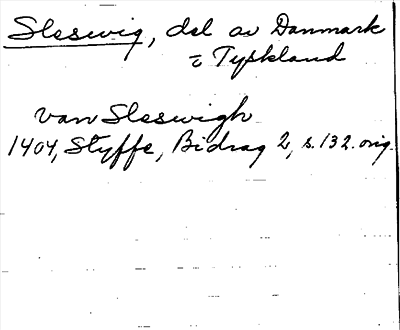 Sleswig, del av Danmark
& Tyskland
van Sleswigh
1404, Styffe, Bidrag 2, s. 132. orig.